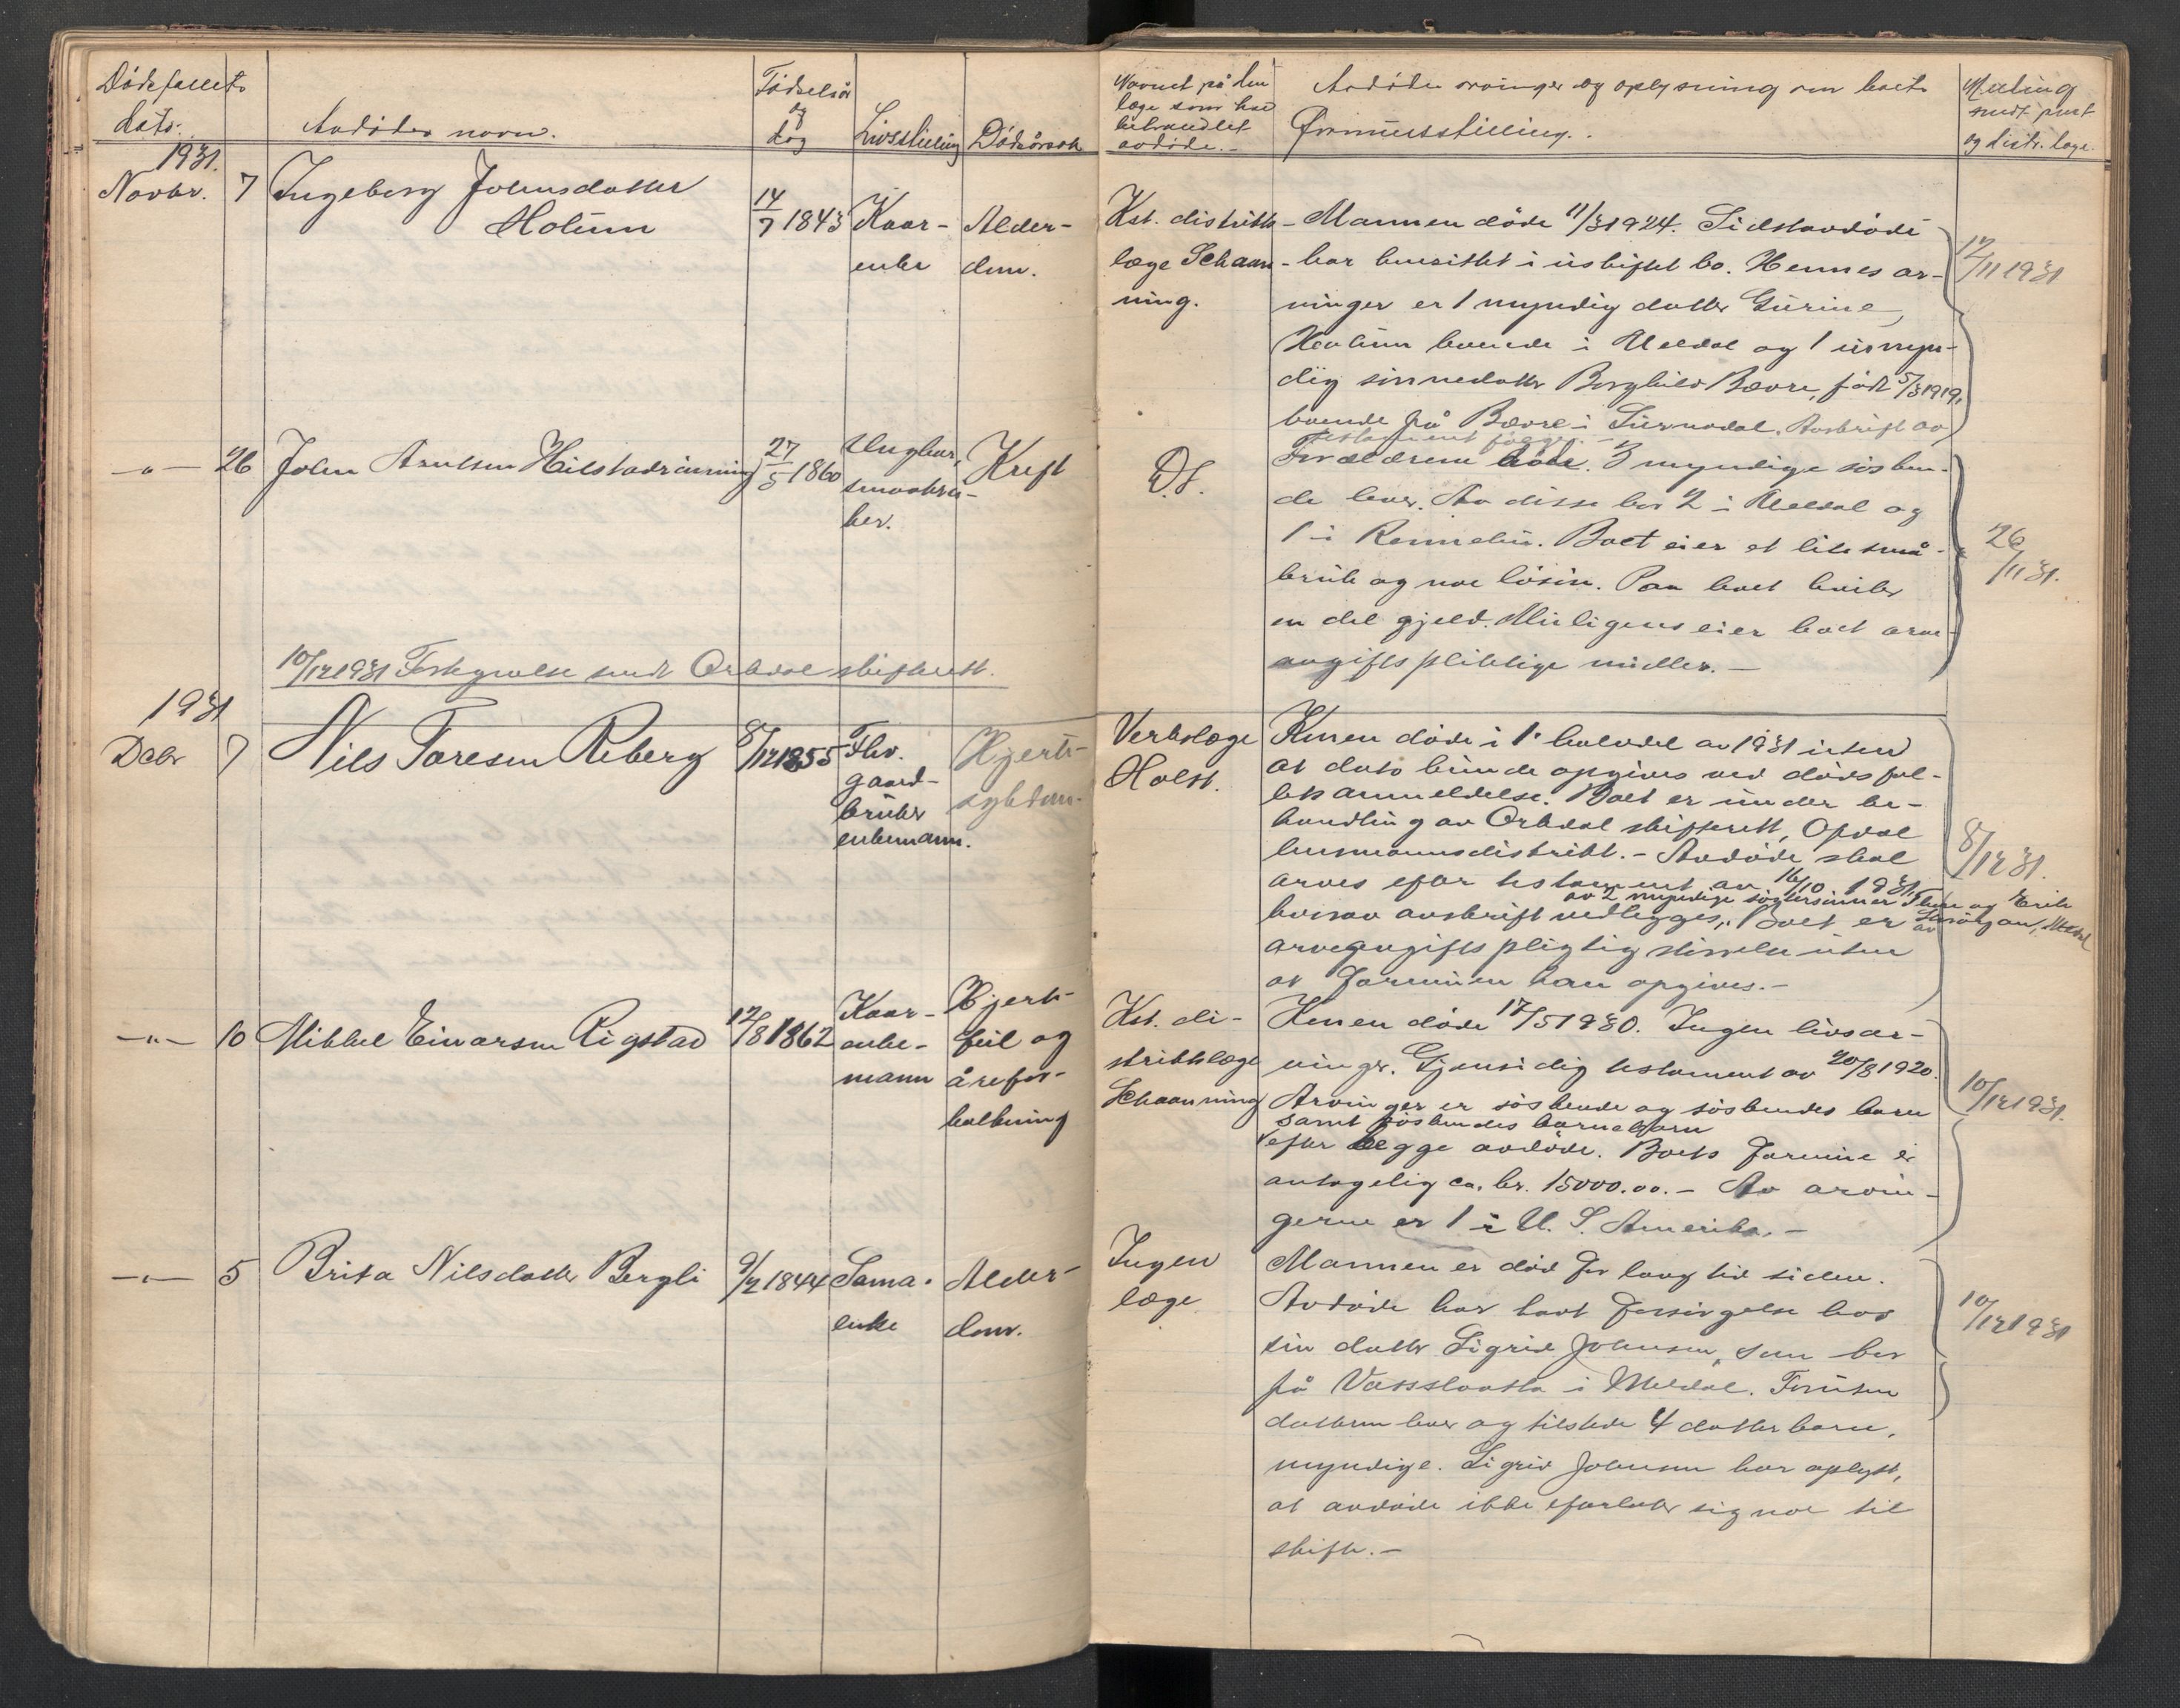 Dødsfallets
dato.
Avdødes navn.
Fødselsår
og
dag
Livsstilling
Dødsårsak
Navnet på den
læge som har
behandlet
avdøde.-
Avdødes arvinger og oplysning om boets
formuesstilling.
Melding
sendt
og distr. læge.
1931.
Novbr. 7 Ingeborg Johnsdatter
Holum
14/7 1843
Kaar-
enke
Alder-
dom.
Kst. distrikts-
læge Schaan-
ning.
Mannen døde 11/3 1924. Sidstavdøde
har hensittet i uskiftet bo. Hennes ar-
vinger er 1 myndig datter Gurine
Holum boende i Meldal og 1 umyn-
dig sønnedatter Borghild Bævre, født 5/3 1919,
boende på Bævre i Surnadal. Avskrift av
testament følger.-
12/11 1931
-"- 26 John Arntsen Hilstadrønning
27/5 1860
Ungkar,
smaabru-
ker.
Kreft
D.S.
Forældrene døde. 3 myndige søsken-
de lever. Av disse bor 2 i Meldal og
1 i Rennebu. Boet eier et lite små-
bruk og noe løsøre. Paa boet hviler
en del gjeld. Muligens eier boet arve-
avgiftspliktige midler.-
26/11 31.
10/12 1931 Fortegnelse sendt Orkdal skifterett.
1931
Decbr 7 Nils Toresen Reberg
8/12 1855
Fhv.
gaard-
bruker
enkemann.
Hjerte-
sykdom.
Verkslæge
Holst.
Konen døde i 1. halvdel av 1931 uten
at dato kunde opgives ved dødsfal-
lets anmeldelse. Boet er under be-
handling av Orkdal skifterett, Opdal
lensmannsdistrikt.- Avdøde skal
arves efter testament av 16/10 1931,
av 2 myndige søstersønner og Erik
hvorav avskrift vedlegges. Boet er av
arveavgiftspligtig størrelse uten
at formuen kan opgives.-
8/12 31.
-"- 10 Mikkel Einarsen Rigstad
12/8 1862
Kaar-
enke-
mann
Hjerte-
feil og
årefor-
kalkning
Kst. di-
striktslæge
Schaanning
Konen døde 17/5 1930. Ingen livsar-
vinger. Gjensidig testament av 20/8 1920.
Arvinger er søskende og søskendes barn
samt søskendes barnebarn
efter begge avdøde. Boets formue er
antagelig ca. kr. 15000.00.- Av arvin-
gerne er 1 i U. S. Amerika.-
10/12 1931.
-"- 5 Brita Nilsdatter Bergli
9/2 1844
Sama-
enke
Alder-
dom.
Ingen
læge
Mannen er død for lang tid siden.
Avdøde har havt forsørgelse hos
sin datter Sigrid Johnsen, som bor
på Vasslivatn i Meldal. Foruten
datteren lever og tilstede 4 datterbarn,
myndige. Sigrid Johnsen har oplyst,
at avdøde ikke efterlater sig noe til
skifte.-
10/12 1931